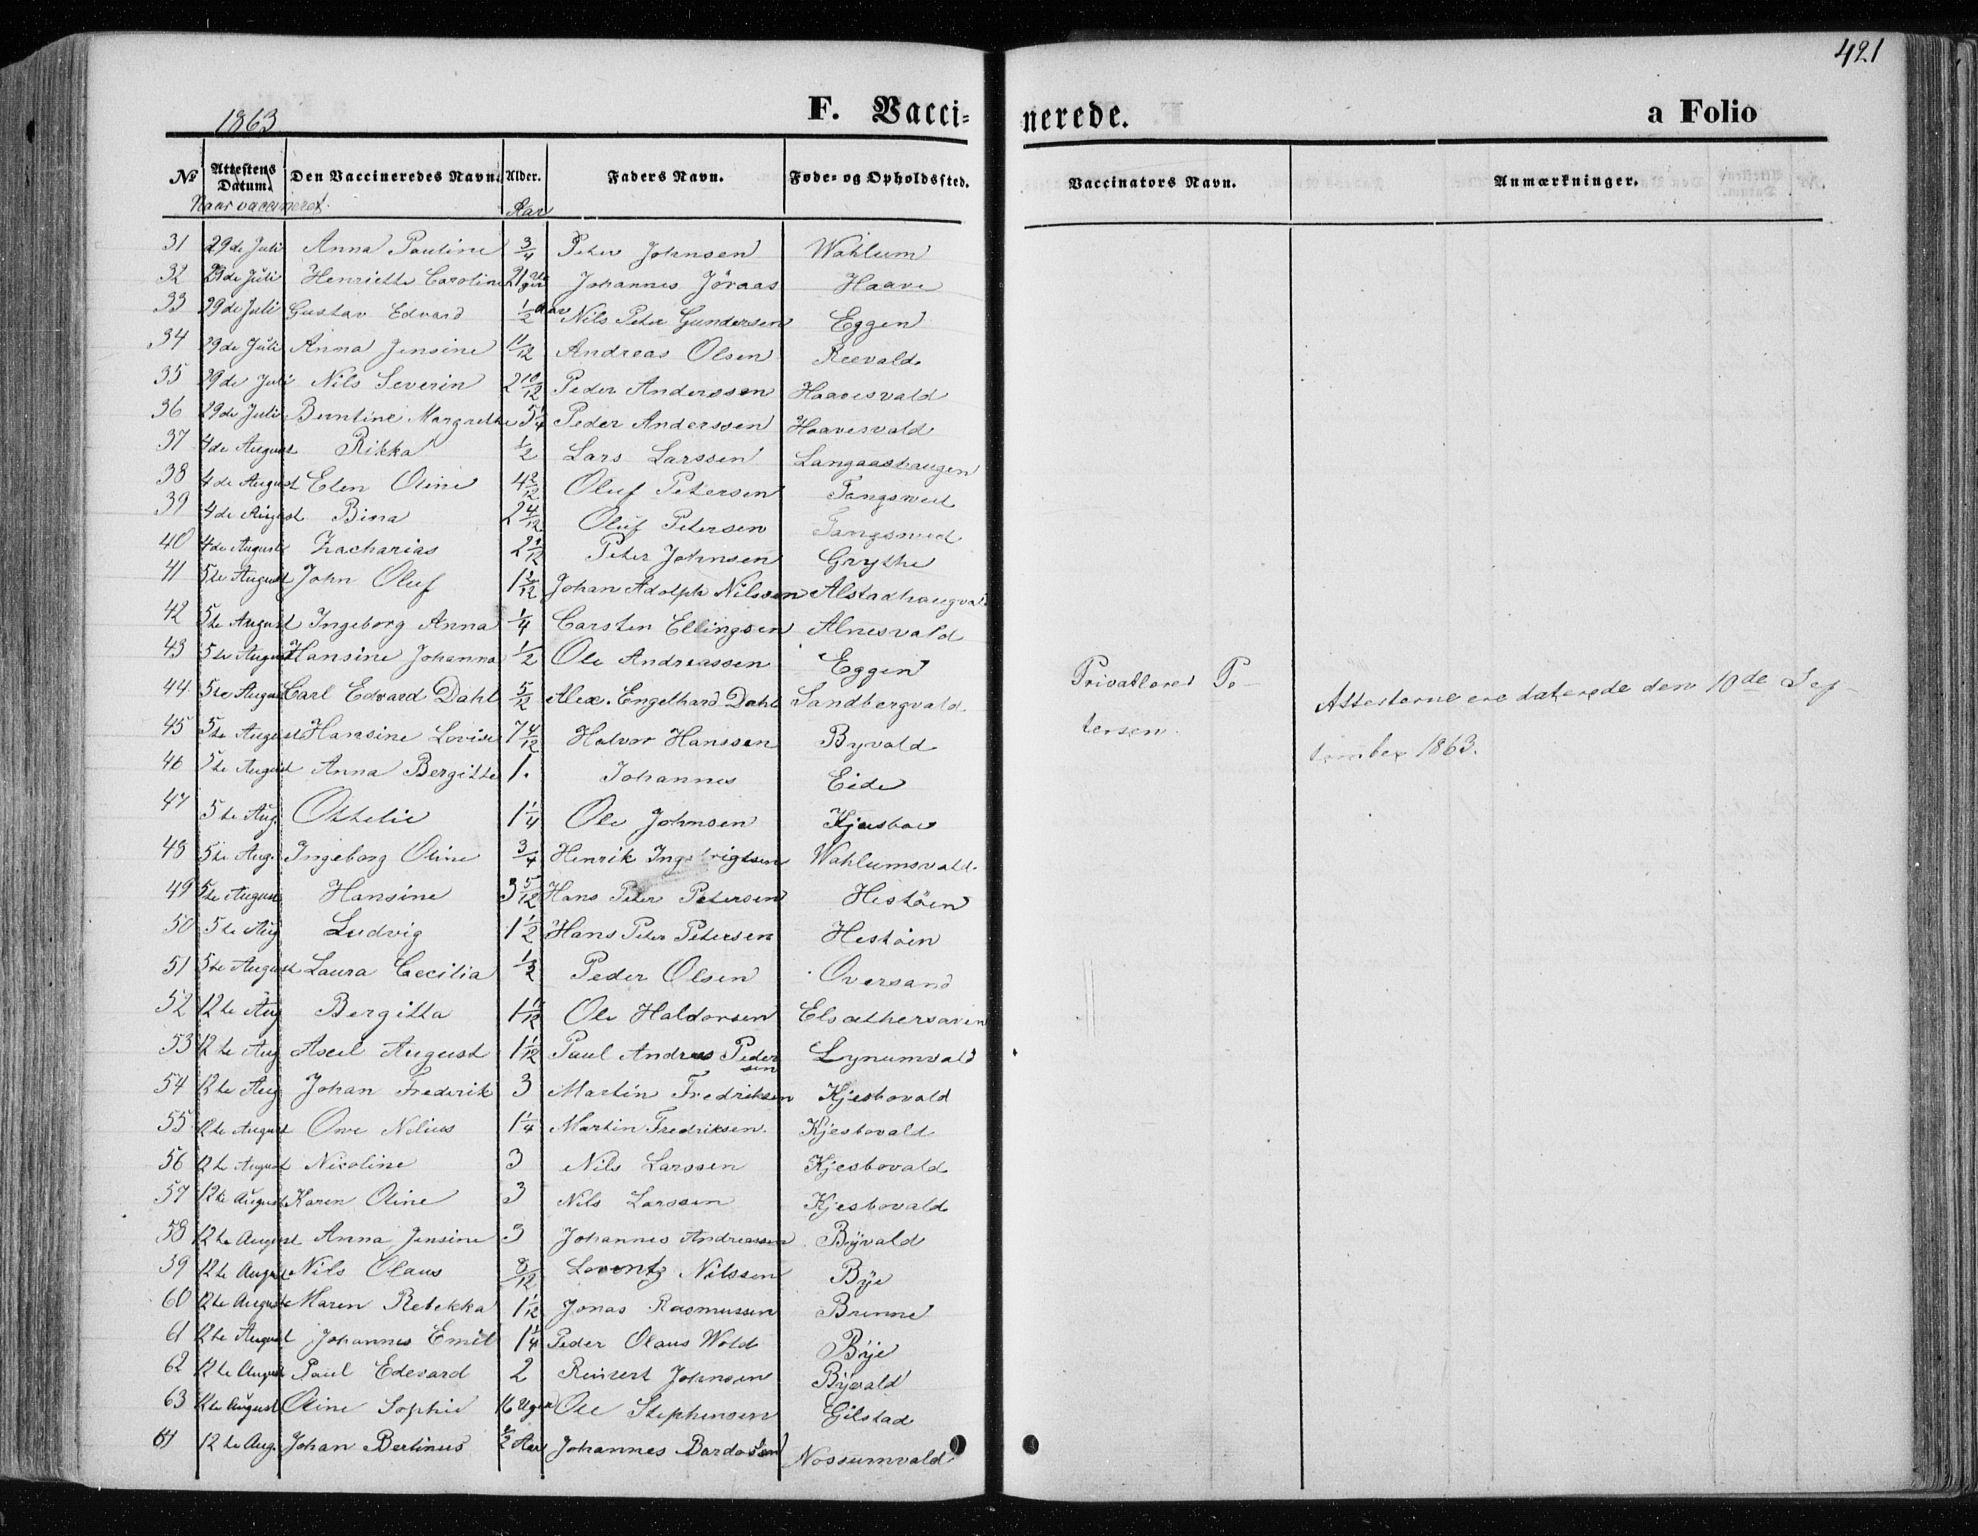 421
1863
F. Vacci=
nerede.
a Folio
No Attestens Datum. Den Vaccineredes Navn. Alder. Faders Navn. Føde= og Opholdssted.
Vaccinators Navn. Anmærkninger.
Naar vaccineret. Aar
31 29de Juli Anna Pauline 3/4 Peter Johnsen Wahlum
32 29de Juli Henriette Caroline 21 Uger Johannes Jöraas Haave
33 29de Juli Gustav Edvard 1/2 Aar Nils Peter Gundersen Eggen
34 29de Juli Anna Jensine 11/12 Andreas Olsen Reevald
35 29de Juli Nils Severin 2 10/12 Peder Anderssen Haavesvald
36 29de Juli Berntine Margrethe 5 1/4 Peder Anderssen Haavesvald
37 4de August Rikka 1/2 Lars Larssen Langaashaugen
38 4de August Elen Oline 4 2/12 Oluf Petersen Tangsveed
39 4de August Bina 2 4/12 Oluf Petersen Tangsveed
40 4de August Zacharias 2 1/12 Peter Johnsen Grythe
41 5te August John Oluf 1 1/12 Johan Adolph Nilssen Alstadhaugvald
42 5te August Ingeborg Anna 1/4 Carsten Ellingsen Alnesvald
43 5te August Hansine Johanna 1/2 Ole Andreassen Eggen
44 5te August Carl Edvard Dahl 5/12 Alex. Engelhard Dahl Sandbergvald
45 5te August Hansine Lovise 7 4/12 Halvor Hanssen Byvald
46 5te August Anna Bergitte 1. Johannes Eide
47 5te Aug. Othelie 1 1/4 Ole Johnsen Kjesboe
48 5te Aug. Ingeborg Oline 3/4 Henrik Ingebrigtsen Wahlumsvald
49 5te August Hansine 3 5/12 Hans Peter Petersen Hestöen
50 5te Aug Ludvig 1 1/2 Hans Peter Petersen Hestöen
51 5te August Laura Cecilia 1/2 Peder Olsen Oversand
52 12te Aug Bergitta 1 1/12 Ole Haldorsen Elsætheraven
53 12te Aug Axel August 1 1/12 Paul Andreas Pedersen Lynumvald
54 12te Aug Johan Frederik 3 Martin Fredriksen Kjesbovald
55 12te August Ove Nelius 1 1/4 Martin Fredriksen. Kjesbovald
56 12te August Nicoline 3 Nils Larssen Kjesbovald
57 12te August Karen Oline 3 Nils Larssen Kjesbovald
58 12te August Anna Jensine 3 Johannes Andreassen Byvald
59 12te August Nils Olaus 8/12 Lorentz Nilssen Bye
60 12te August Maren Rebekka 1 1/12 Jonas Rasmussen Brenne
61 12te August Johannes Emil 1 1/4 Peder Olaus Wold Bye
62 12te August Paul Edevard 2 Reinert Johnsen Byvald
63 12te August Oline Sophie 16 Uger Ole Stephensen Gilstad
64 12te Aug. Johan Bertinus 1/2 Aar Johannes Bardosen Nossumvald
Privatlærer Pe-
tersen.
Attesterne ere daterede den 10de Sep-
tember 1863.